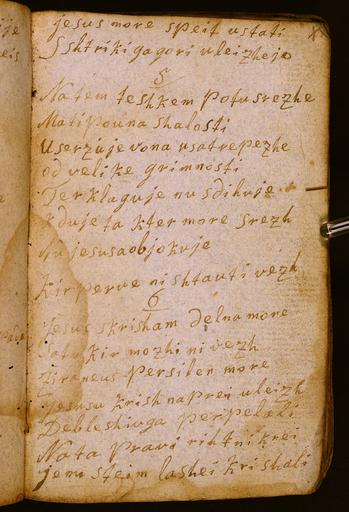 jesus more speit ustati
S shtriki gagori uleizhejo
5
Na tem teshkem potu srezhe
Mati pouna shalosti
Userzuje vona usa trepezhe
od velike grimnosti
Ter klaguje nu sdihuje
kduje ta kter more srezh
Nu jesusa objokuje
Kir perve ni shtauti vezh
6
Jesus skrisham delna more
kir mozhi ni vezh
Ziraneus Persilen more
Jesusu krish naprei uleizh
Debleshiuga perpelali
Na ta pravi riht ni krei
jemi steim lashei krishali